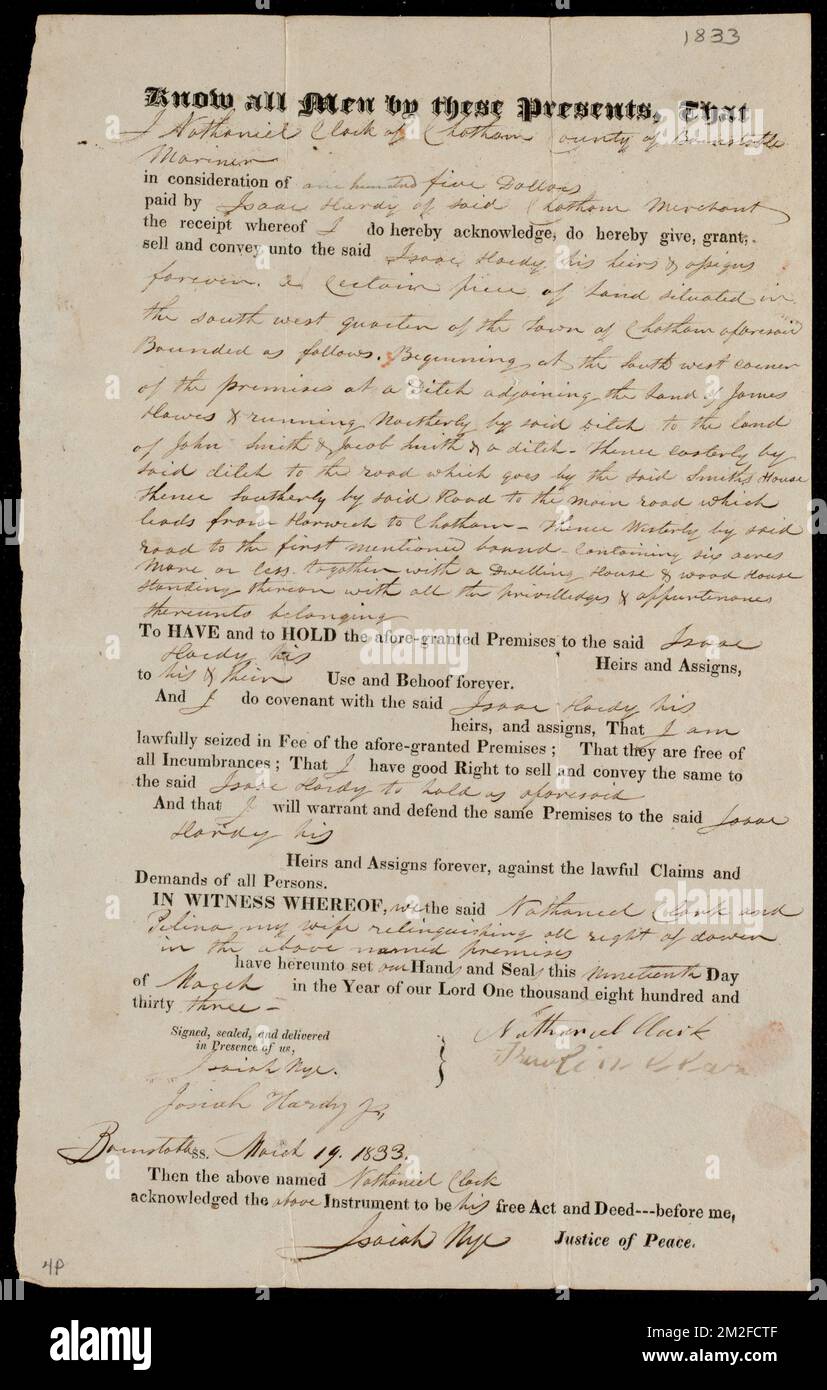 1833
Know all Men by these Presents, That
I Nathaniel Clark of Chatham County of Barnstable
Mariner
in consideration of one hundred five Dollars
paid by Isaac Hardy of said Chatham Merchant
the receipt whereof I do hereby acknowledge, do hereby give, grant,
sell and convey unto the said Isaac Hardy his heirs & assigns
forever. a Certain piece of Land situated in
the south west quarter of the Town of Chatham aforesaid
Bounded as follows. Beginning at the South west corner
of the premises at a Ditch adjoining the Land of James
Hawes & running Northerly by said ditch to the land
of John Smith & Jacob Smith & a ditch - thence easterly by
said ditch to the road which goes by the said Smiths House
thence Southerly by said Road to the main road which
leads from Harwich to Chatham - thence Westerly by said
road to the first mentioned bound - Containing six acres
more or less. together with a Dwelling House & wood House
standing thereon with all the privilledges & appurtenances
thereunto belonging
To HAVE and to HOLD the afore-granted Premises to the said Isaac
Hardy his Heirs and Assigns,
to his & their Use and Behoof forever.
And I do covenant with the said Isaac Hardy his
heirs, and assigns, That I am
lawfully seized in Fee of the afore-granted Premises; That they are free of
all Incumbrances; That I have good Right to sell and convey the same to
the said Isaac Hardy to hold as aforesaid
And that I will warrant and defend the same Premises to the said Isaac
Hardy his
Heirs and Assigns forever, against the lawful Claims and
Demands of all Persons.
IN WITNESS WHEREOF, we the said Nathaniel Clark and
my wife relinquishing all right of dower
in the above named premises
have hereunto set our Hands and Seals this nineteenth Day
of March in the Year of our Lord One thousand eight hundred and
thirty three -
Signed, sealed, and delivered
in Presence of us,
Nathaniel Clark
Isaiah Nye.
Josiah Hardy Jr,
Barnstable ss. March 19. 1833.
Then the above named Nathaniel Clark
acknowledged the above Instrument to be his free Act and Deed---before me,
Isaiah Nye Justice of Peace.
4P
alamy
Image ID: 2M2FCTF
www.alamy.com